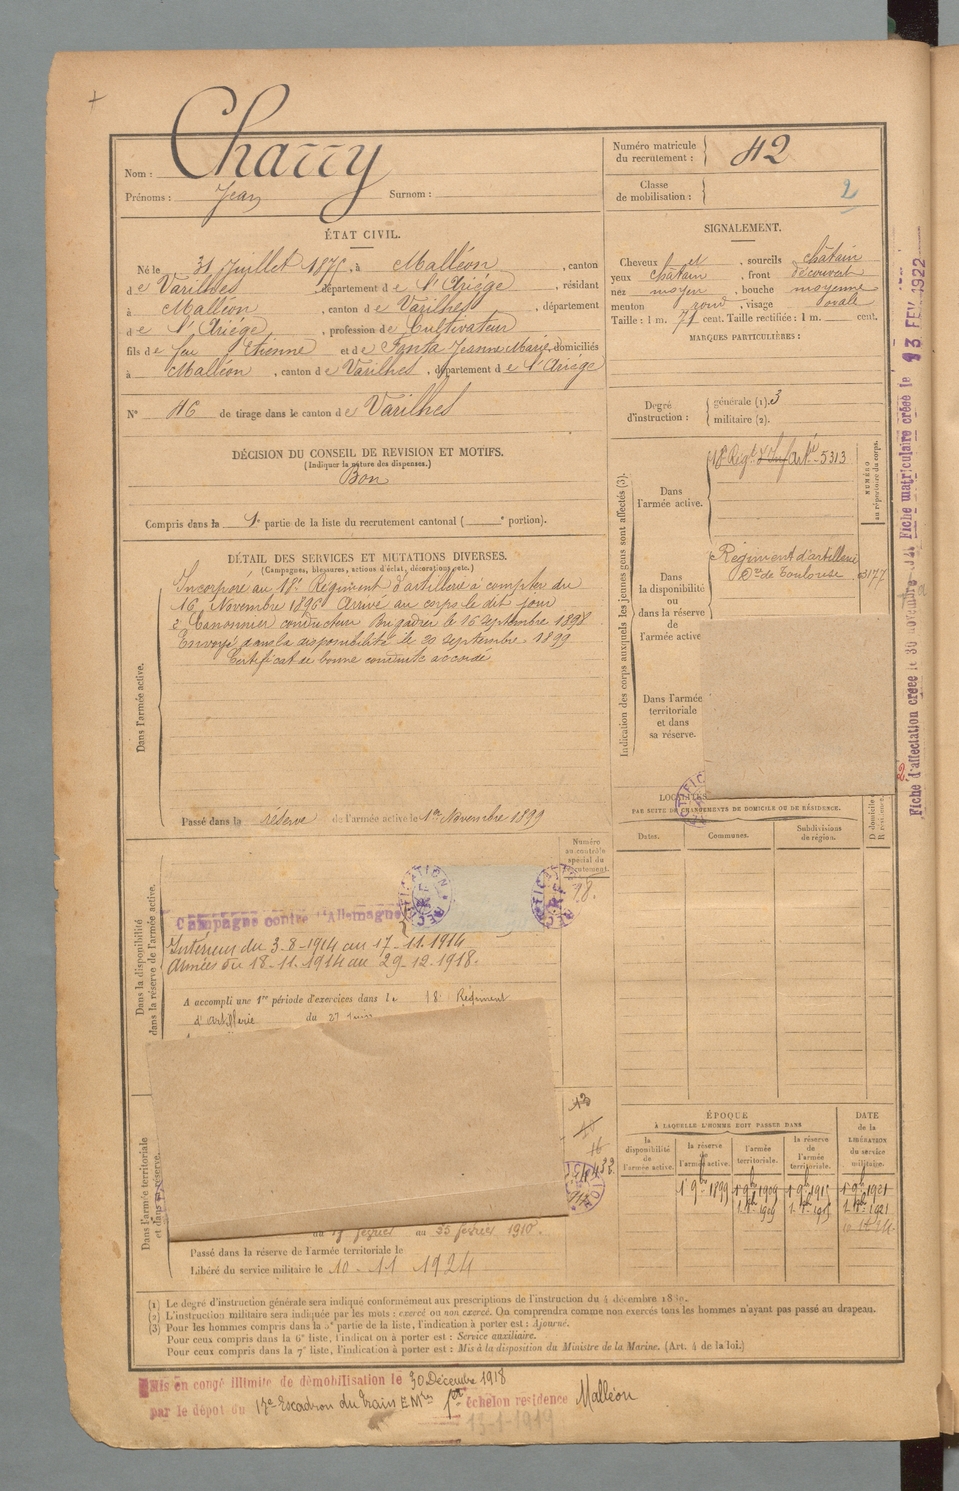 Charry
Nom :
Prénoms : Jean Surnom :
ÉTAT CIVIL.
Né le 31 Juillet 1875, à Malléon, canton
de Varilhes département de l'Ariége, résidant
à Malléon, canton de Varilhes, département
de l'Ariége, profession de Cultivateur
fils de feu Etienne et de Fonta Jeanne Marie, domiciliés
à Malléon, canton de Varilhes, département de l'Ariége
N° 46 de tirage dans le canton de Varilhes
DÉCISION DU CONSEIL DE REVISION ET MOTIFS.
(Indiquer la nature des dispenses.)
Bon
Compris dans la 1e partie de la liste du recrutement cantonal ( e portion).
DÉTAIL DES SERVICES ET MUTATIONS DIVERSES.
(Campagnes, blessures, actions d'éclat, décorations, etc.)
Dans l'armée active.
Incorporé au 18e Régiment d'artillerie à compter du
16 Novembre 1896 Arrivé au corps le dit jour
2e Canonnier conducteur Brigadier le 16 septembre 1898
Envoyé dans la disponibilité le 20 septembre 1899
Certificat de bonne conduite accordé
Passé dans la réserve de l'armée active le 1er Novembre 1899
Dans la disponibilité
dans la réserve de l'armée active.
Numéro
au contrôle
spécial du
recrutement.
98.
Campagne contre l'Allemagne
Intérieur du 3-8-1914 au 17-11-1914
Armées du 18-11-1914 au 29-12-1918.
A accompli une 1re période d'exercices dans le 18e Régiment
d'artillerie du 27 juin
Dans l'armée territoriale
et dans sa réserve.
au février 1910.
Passé dans la réserve de l'armée territoriale le
Libéré du service militaire le 10-11 1924
Numéro matricule
du recrutement : 42
Classe
de mobilisation :
2
SIGNALEMENT.
Cheveux et, sourcils châtain
yeux châtain, front découvert
nez moyen, bouche moyenne
menton rond, visage ovale
Taille : 1 m. 71 cent. Taille rectifiée : 1 m. cent.
MARQUES PARTICULIÈRES :
Degré
d'instruction :
générale (1). 3
militaire (2).
Indication des corps auxquels les jeunes gens sont affectés (3).
NUMÉRO
au répertoire du corps.
Dans
l'armée active.
18e Régt d'Inf Artie 5313
Dans
la disponibilité
ou
dans la réserve
de
l'armée active
Régiment d'artillerie
de Toulouse 3177
Dans l'armée
territoriale
et dans
sa réserve.
PAR SUITE DE CHANGEMENTS DE DOMICILE OU DE RÉSIDENCE.
Dates. Communes. Subdivisions
de région.
D domicile
R résidence.
ÉPOQUE
À LAQUELLE L'HOMME DOIT PASSER DANS
DATE
de la
LIBÉRATION
du service
militaire.
la
disponibilité
de
l'armée active.
la réserve
de
l'armée active.
l'armée
territoriale.
la réserve
de
l'armée
territoriale.
1 9bre 1899 1 9bre 1909 1 9bre 1915 1 9bre 1921
Fiche d'affectation créée le 30 novembre
Fiche matriculaire créée le 13 FEV. 1922
(1) Le degré d'instruction générale sera indiqué conformément aux prescriptions de l'instruction du 4 décembre 1889.
(2) L'instruction militaire sera indiquée par les mots : exercé ou non exercé. On comprendra comme non exercés tous les hommes n'ayant pas passé au drapeau.
(3) Pour les hommes compris dans la 5e partie de la liste, l'indication à porter est : Ajourné.
Pour ceux compris dans la 6e liste, l'indication à porter est : Service auxiliaire.
Pour ceux compris dans la 7e liste, l'indication à porter est : Mis à la disposition du Ministre de la Marine. (Art. 4 de la loi.)
Mis en congé illimité de démobilisation le 30 Décembre 1918
par le dépôt du 17e Escadron du Train E.M. 1er échelon residence Malléon
13-1-1919